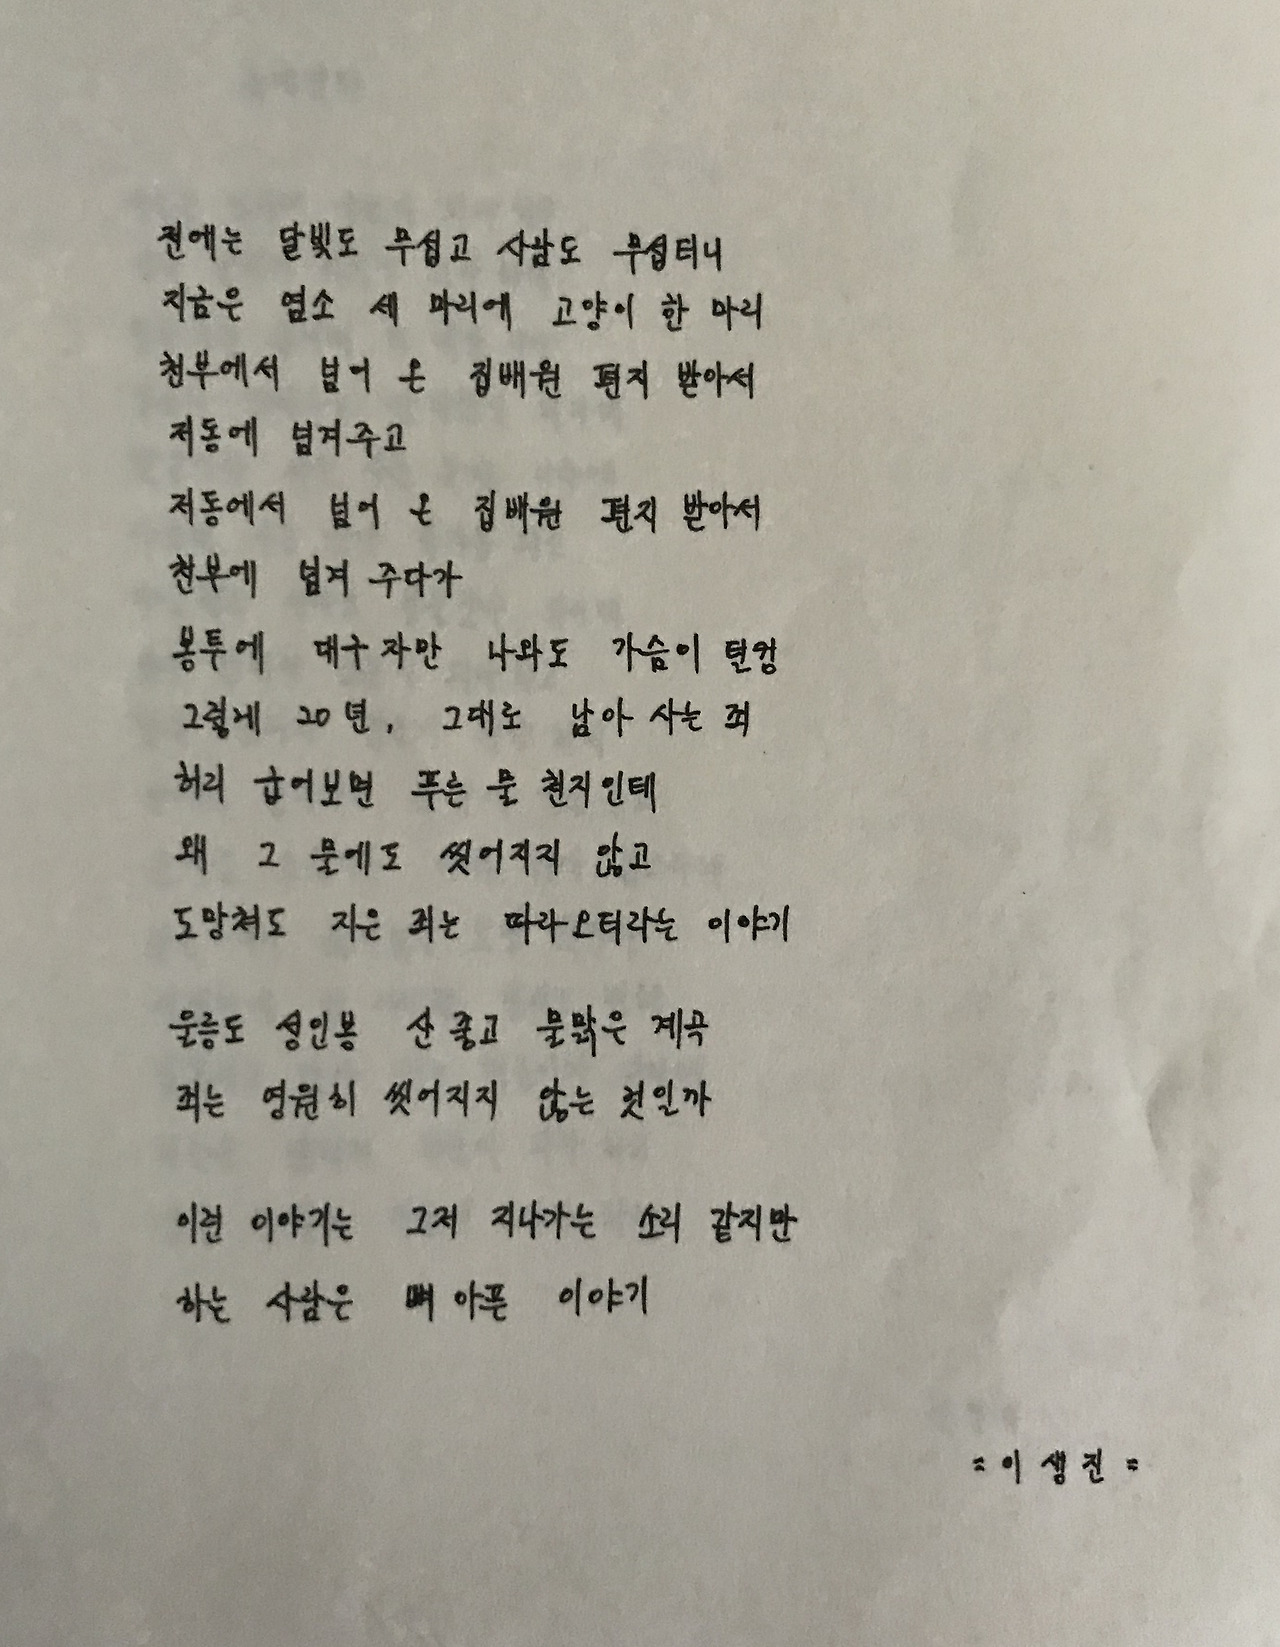 전에는 달빛도 무섭고 사람도 무섭터니
지금은 염소 세 마리에 고양이 한 마리
천부에서 넘어 온 집배원 편지 받아서
저동에 넘겨주고
저동에서 넘어 온 집배원 편지 받아서
천부에 넘겨 주다가
봉투에 대구 자만 나와도 가슴이 턴컹
그렇게 20년, 그대로 남아 사는 죄
허리 굽어보면 푸른 물 천지인데
왜 그 물에도 씻어지지 않고
도망쳐도 지은 죄는 따라오더라는 이야기
울릉도 성인봉 산 좋고 물맑은 계곡
죄는 영원히 씻어지지 않는 것인까
이런 이야기는 그저 지나가는 소리 같지만
하는 사람은 뼈 아픈 이야기
= 이 생 진 =